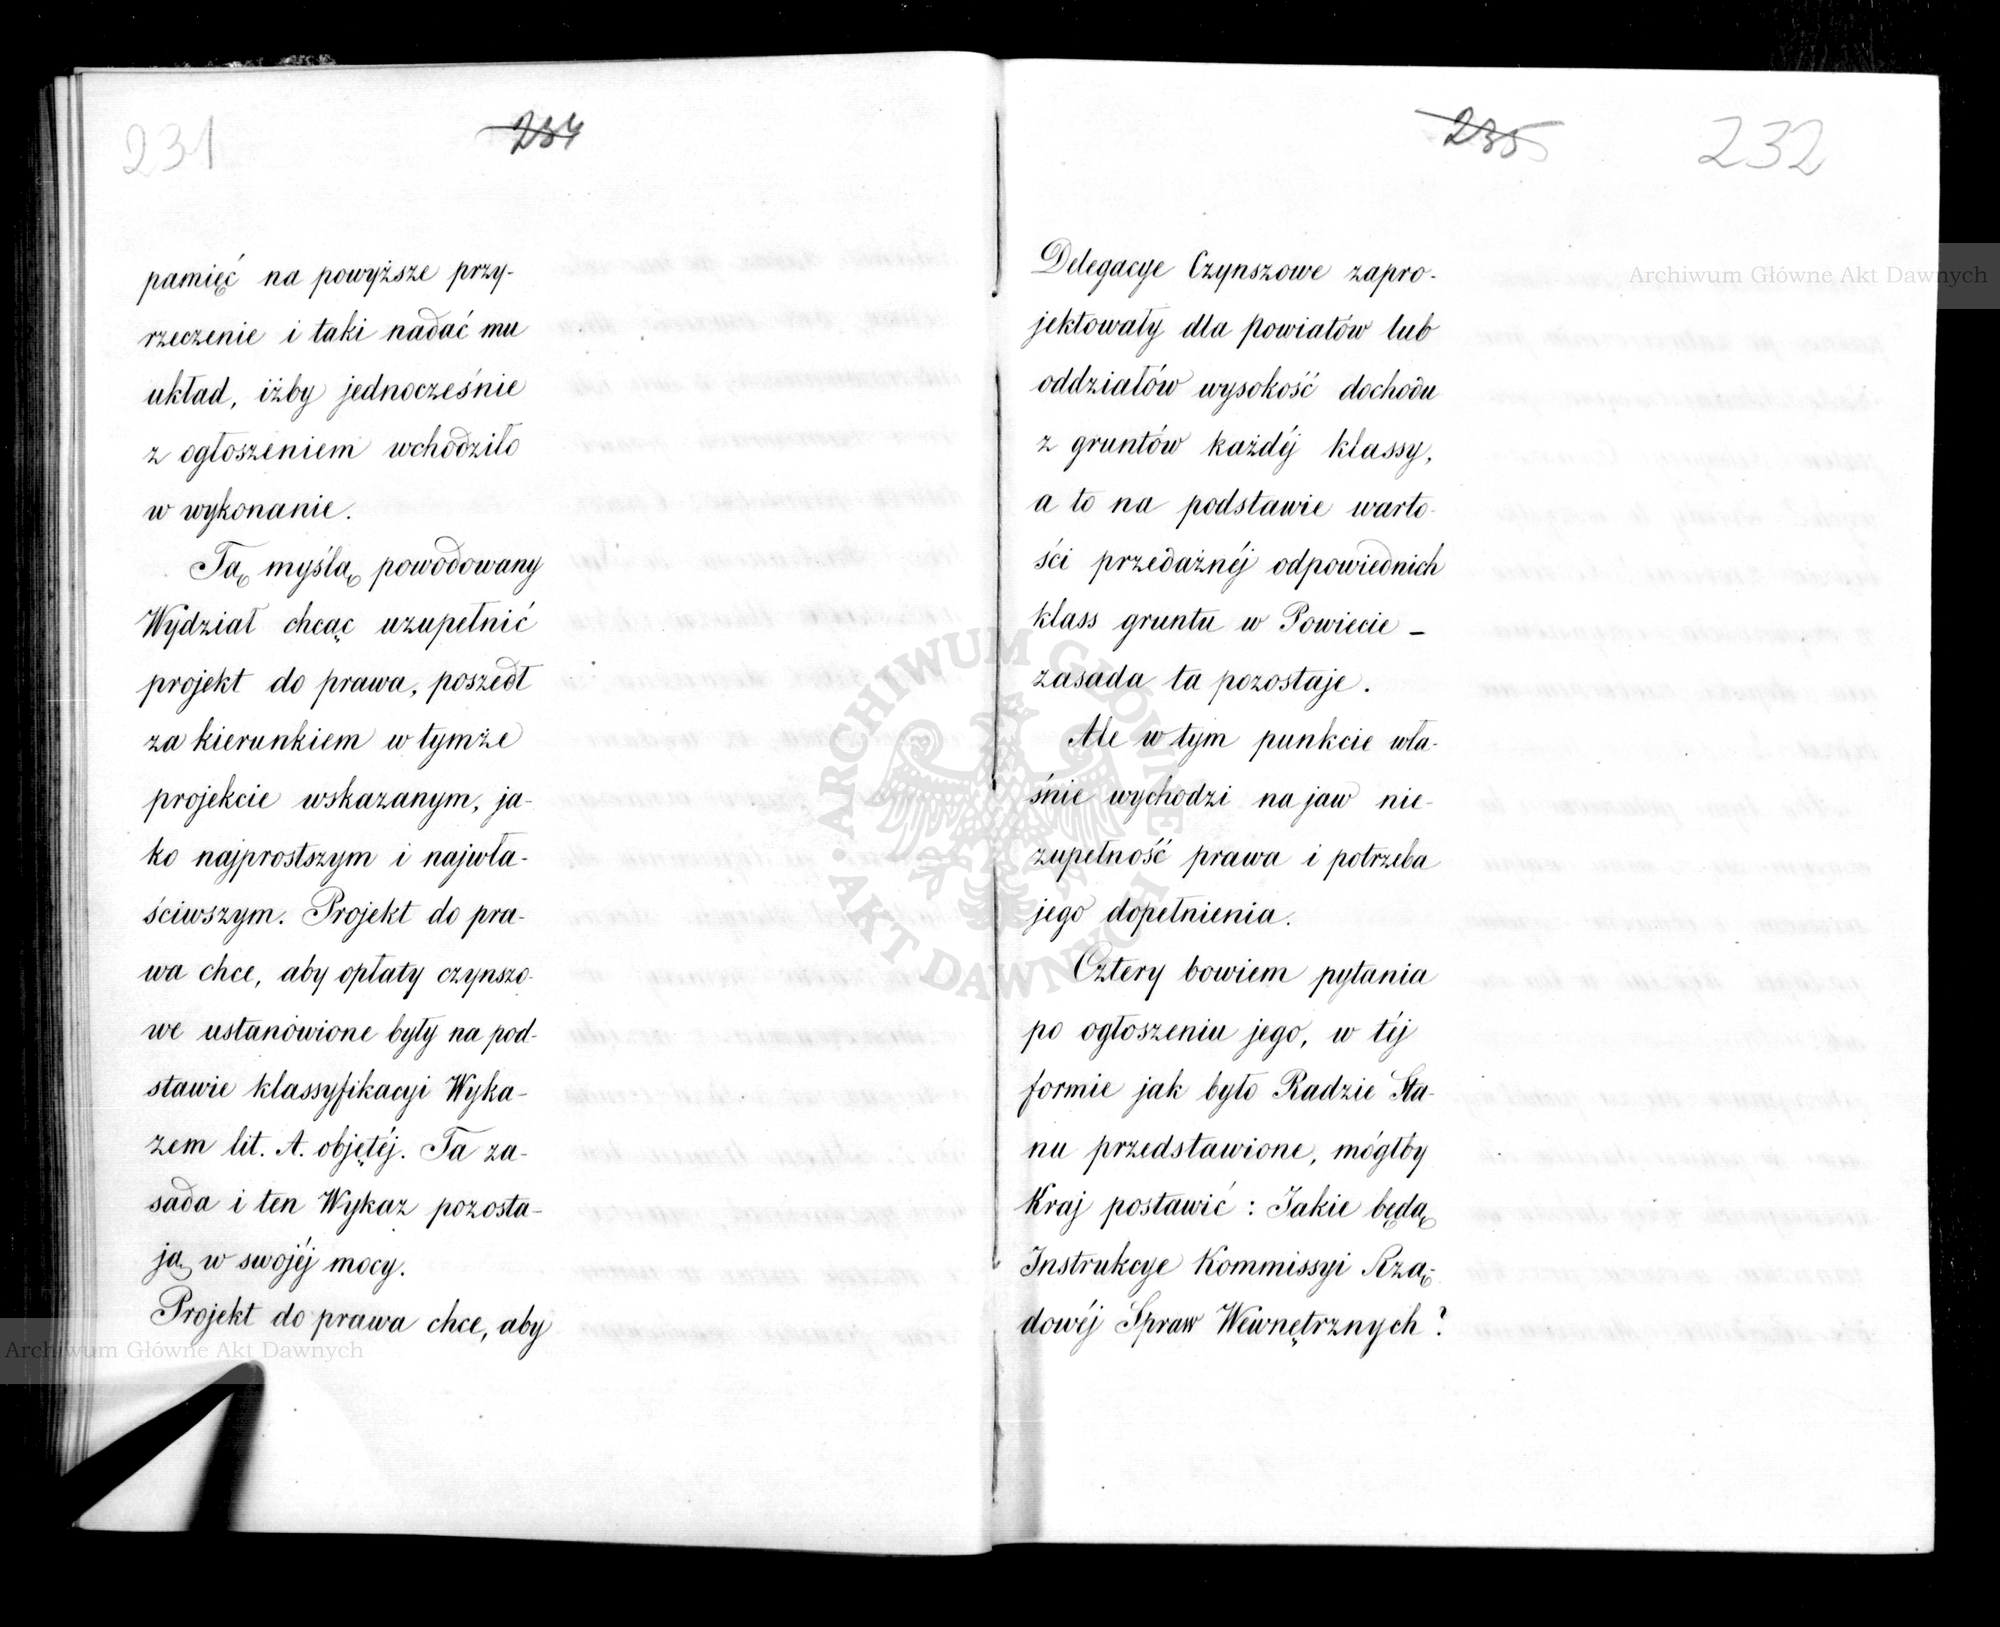 231
234
pamięć na powyższe przy-
rzeczenie i taki nadać mu
układ, iżby jednocześnie
z ogłoszeniem wchodziło
w wykonanie.
Tą myślą powodowany
Wydział chcąc uzupełnić
projekt do prawa, poszedł
za kierunkiem w tymże
projekcie wskazanym, ja-
ko najprostszym i najwła-
ściwszym. Projekt do pra-
wa chce, aby opłaty czynszo-
we ustanowione były na pod-
stawie klassyfikacyi Wyka-
zem lit. A. objętéj. Ta za-
sada i ten Wykaz pozosta-
ją w swojéj mocy.
Projekt do prawa chce, aby
235
232
Delegacye Czynszowe zapro-
jektowały dla powiatów lub
oddziałów wysokość dochodu
z gruntów każdéj klassy,
a to na podstawie warto-
ści przedażnéj odpowiednich
klass gruntu w Powiecie –
zasada ta pozostaje.
Ale w tym punkcie wła-
śnie wychodzi na jaw nie-
zupełność prawa i potrzeba
jego dopełnienia.
Cztery bowiem pytania
po ogłoszeniu jego, w téj
formie jak było Radzie Sta-
nu przedstawione, mógłby
Kraj postawić: Jakie będą
Instrukcye Kommissyi Rzą-
dowéj Spraw Wewnętrznych?
Archiwum Główne Akt Dawnych
ARCHIWUM GŁÓWNE • AKT DAWNYCH •
Archiwum Główne Akt Dawnych